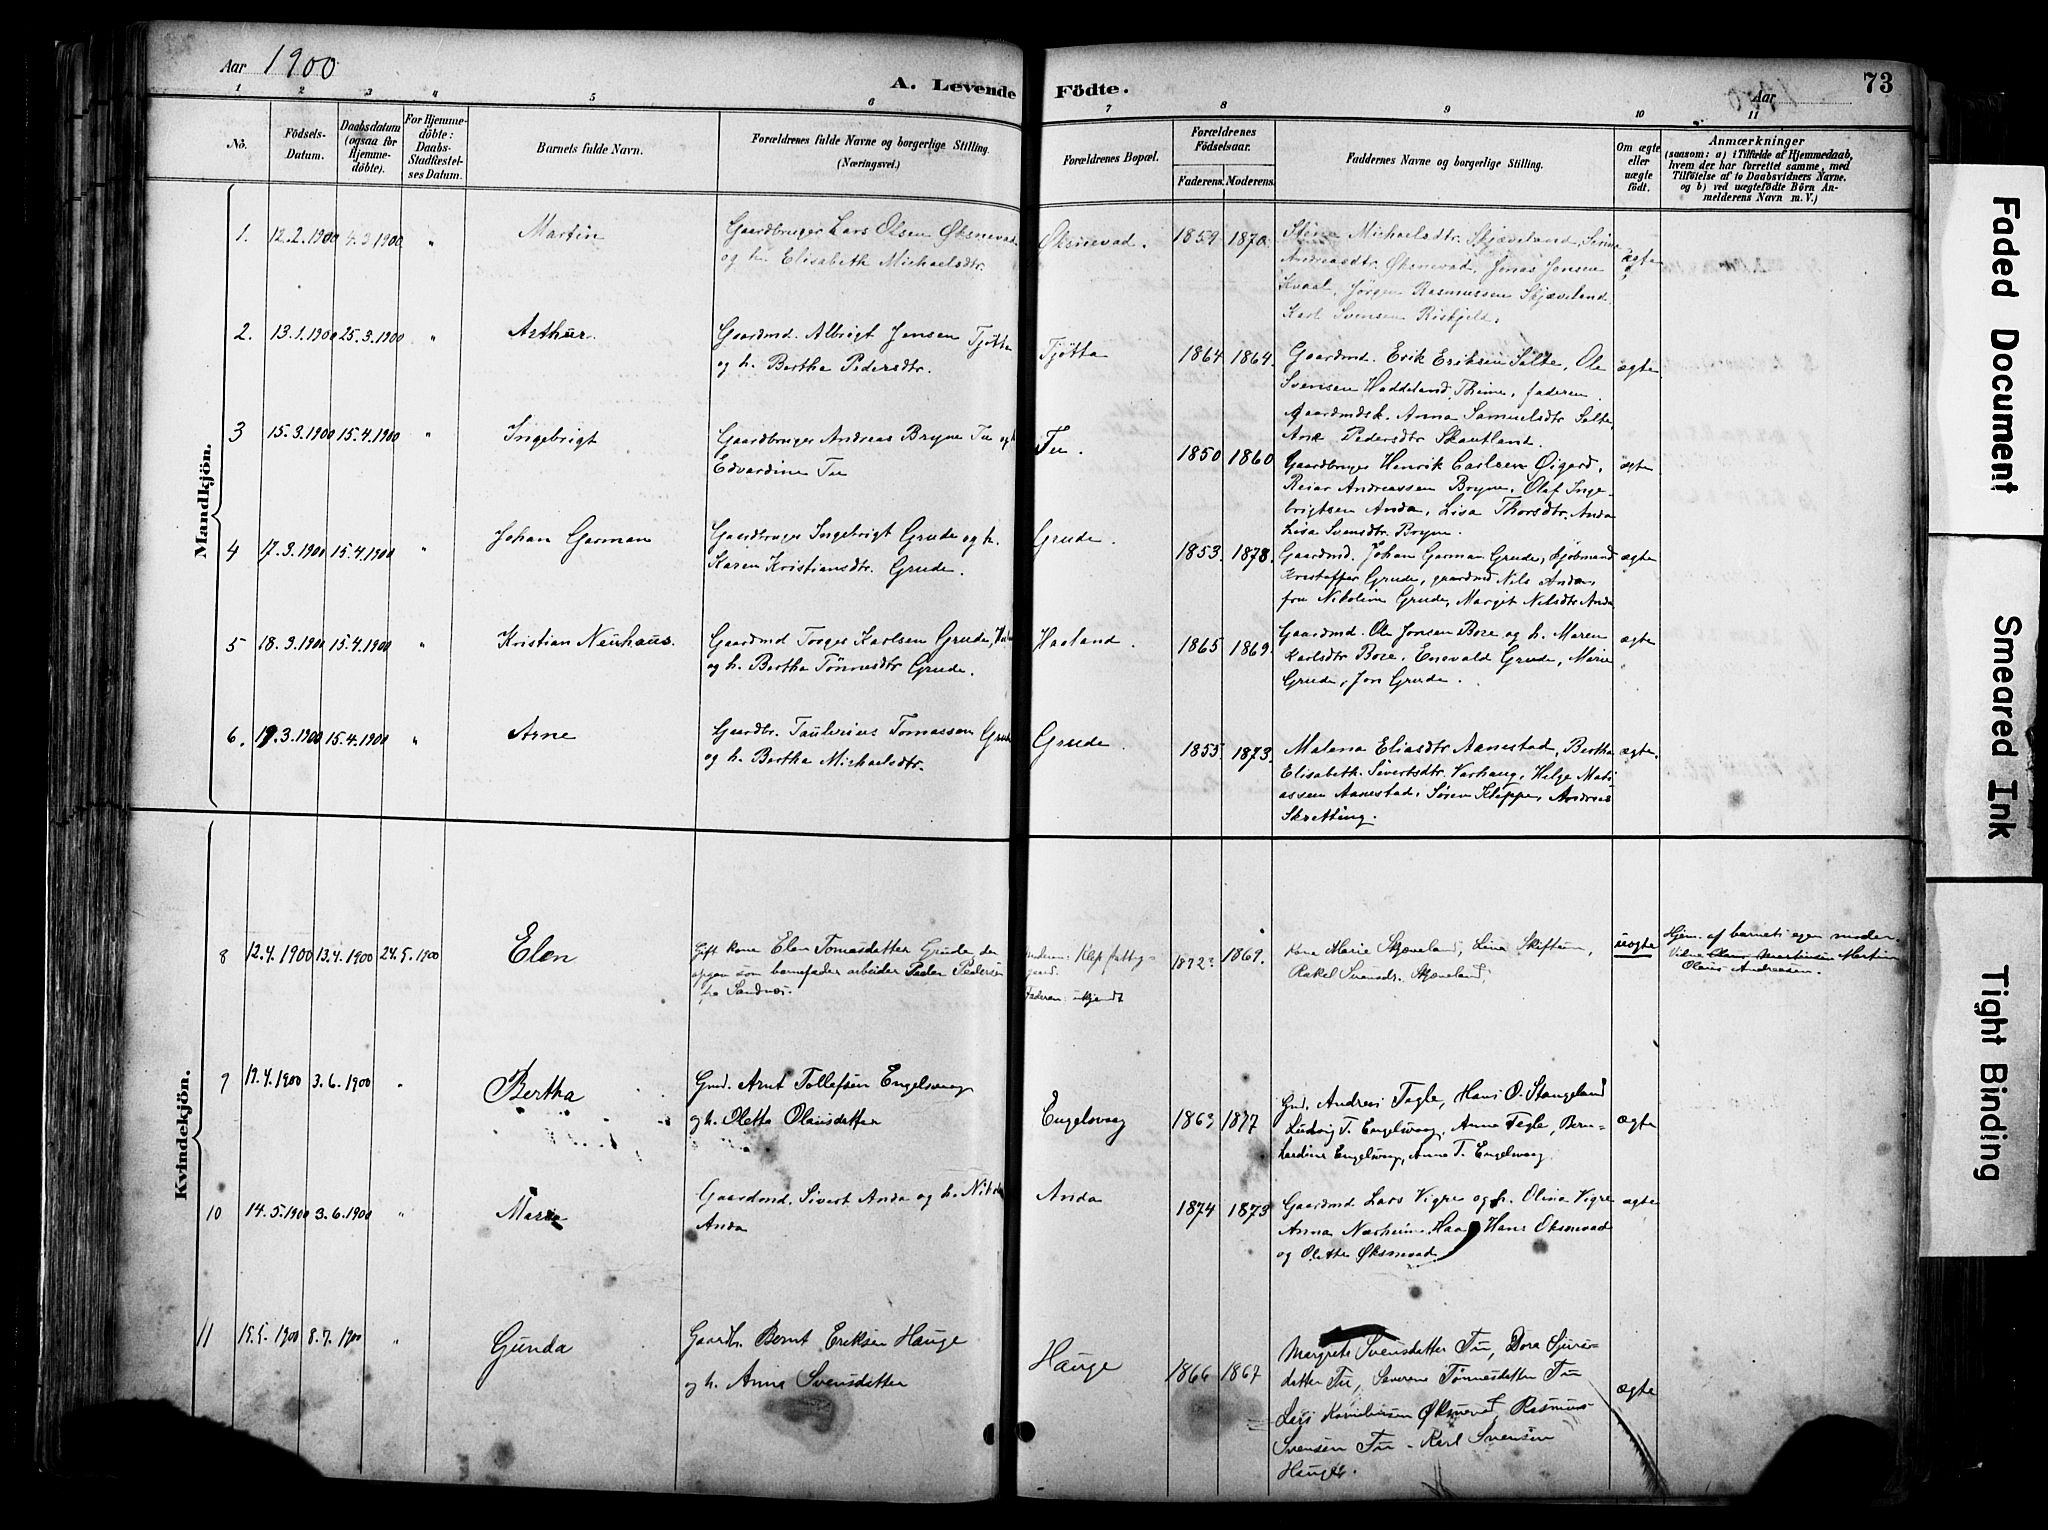 Aar 1900
A. Levende Födte.
Aar
73
1 2 3 4 5 6 7 8 9 10 11
No.
Födsels-Datum.
Daabsdatum (ogsaa for Hjemmedöbte).
For Hjemmedöbte: Daabs-Stadfæstelses Datum.
Barnets fulde Navn.
Forældrenes fulde Navne og borgerlige Stilling. (Næringsvei.)
Forældrenes Bopæl.
Forældrenes Födselsaar.
Faderens. Moderens.
Faddernes Navne og borgerlige Stilling.
Om ægte eller uægte födt.
Anmærkninger
(saasom: a) i Tilfælde af Hjemmedaab,
hvem der har forrettet samme, med
Tilföielse af to Daabsvidners Navne.
og b) ved uægtefödte Börn An-
melderens Navn m. V.)
Mandkjön.
1. 12.2.1900 4.3.1900 " Martin
Gaardbruger Lars Olsen Øksnevad
og h. Elisabeth Michaelsdtr.
Øksnevad. 1859 1870
Stina Michaelsdtr. Skjæveland,
Andreasdtr. Øksnevad, Jonas Jonsen
Kvaal, Jørgen Rasmussen Skjæveland
Karl Svensen
ægte
2. 13.1.1900 25.3.1900 " Arthur.
Gaardmd. Albrigt Jensen Tjøtta
og h. Bertha Pedersdtr.
Tjøtta 1864 1864
Gaardmd. Erik Eriksen Salte, Ole
Svensen Haddeland, Thime, faderen.
Gaardmdsk. Anna Samuelsdtr Salte,
Ane Pedersdtr Skautland.
ægte
3 15.3.1900 15.4.1900 " Ingebrigt
Gaardbruger Andreas Bryne Tu og h.
Edvardine Tu
Tu. 1850 1860
Gaardbruger Henrik Carlsen Øigard,
Reiar Andreassen Bryne, Olaf Inge-
brigtsen Anda, Lisa Thorsdtr. Anda
Lisa Svensdtr. Bryne.
ægte
4 17.3.1900 15.4.1900 " Johan Garman
Gaardbruger Ingebrigt Grude og h.
Karen Kristiansdtr. Grude.
Grude. 1853. 1878.
Gaardmd. Johan Garman Grude, kjøbmand
Kristoffer Grude, gaardmd Nils Anda,
fru Nikoline Grude, Margit Nilsdtr Anda
ægte
5 18.3.1900 15.4.1900 " Kristian Neuhaus.
Gaardmd Torger Karlsen Grude,
og h. Bertha Tønnesdtr Grude.
Haaland. 1865 1869.
Gaardmd. Ole Jonsen Bore og h. Maren
Karlsdtr Bore, Enevald Grude, Marie
Grude, Jon Grude.
ægte
6. 19.3.1900 15.4.1900 " Arne
Gaardbr. Taulerius Tomassen Grude
og h. Bertha Michaelsdtr.
Grude. 1855. 1873.
Malena Eliasdtr Aanestad, Bertha
Elisabeth Sivertsdtr. Varhaug, Helge Mati-
assen Aanestad, Søren Kleppe, Andreas
Skretting.
ægte.
Kvindekjön.
8 12.4.1900 13.4.1900 24.5.1900 Elen
Gift kone Elen Tomasdatter Grude der
opgav som barnefader arbeider Peder Pedersen
fra Sandnæs.
Moderen: Klep fattig-
gard.
Faderen: ukjendt
1872? 1869.
Kone Marie Skjæveland, Lina Skiftun,
Rakel Svensdr. Skjæveland,
uægte
Hjem. af barnets egen moder.
Vidne Martin
Olaus Andreasen.
9 19.4.1900 3.6.1900 " Bertha
Gmd. Arnt Tollefsen Engelsvaag
og h. Oletta Olausdatter
Engelsvaag 1863 1877
Gmd. Andreas Tegle, Hans O. Stangeland
Ludvig T. Engelsvaag, Anna Tegle, Bern-
hardine Engelsvaag, Anna T. Engelsvaag.
ægte
10 14.5.1900 3.6.1900 " Marie
Gaardmd. Sivert Anda og h.
Anda
Anda 1874 1873
Gaardmd Lars Vigre og h. Olina Vigre
Anna Nærheim, Hans Øksnevad
og Olette Øksnevad
ægte
11 15.5.1900 8.7.1900 " Gunda
Gaardbr. Bernt Eriksen Hauge
og h. Anna Svensdatter
Hauge 1866 1867
Margrete Svensdatter Tu, Dora Sjurs-
datter Tu, Severine Tønnesdatter Tu
Lars Kornelius­sen Øksnevad, Rasmus
Svensen Tu - Karl Svensen
Hauge.
ægte
Faded Document
Smeared Ink
Tight Binding